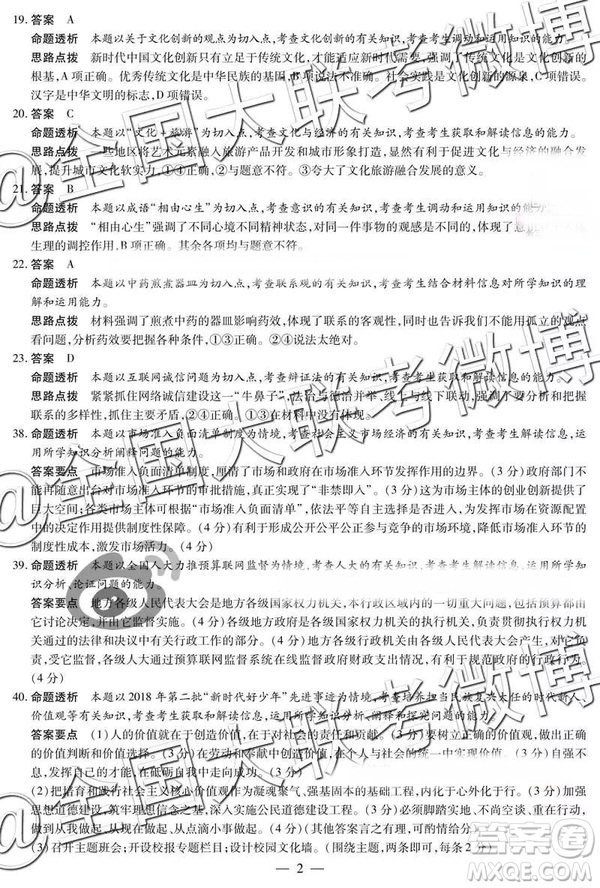 19. 答案　A
命题透析　本题以关于文化创新的观点为切入点，考查文化创新的有关知识，考查考生调动和运用知识的能力。
思路点拨　新时代中国文化创新只有立足于传统文化，才能适应新时代的需要，强调了传统文化是文化创新的
根基，A 项正确。优秀传统文化是中华民族的基因，B 项错误。社会实践是文化创新的源泉，C 项错误。
汉字是中华文明的标志，D 项错误。
20. 答案　C
命题透析　本题以“文化＋旅游”为切入点，考查文化与经济的有关知识，考查考生获取和解读信息的能力。
思路点拨　一些地区将艺术元素融入旅游产品开发和城市形象打造，显然有利于促进文化与经济的融合发
展，提升城市文化软实力，①④正确。②与题意不符。③夸大了文化旅游融合发展的意义。
21. 答案　B
命题透析　本题以成语“相由心生”为切入点，考查意识的有关知识，考查考生调动和运用知识的能力。
思路点拨　“相由心生”强调了不同心境不同精神状态，对同一件事物的观感是不同的，体现了意识对人体
生理的调控作用，B 项正确。其余各项均与题意不符。
22. 答案　A
命题透析　本题以中药煎煮器皿为切入点，考查联系观的有关知识，考查考生结合材料信息对所学知识的理
解和运用能力。
思路点拨　材料强调了煎煮中药的器皿影响药效，体现了联系的客观性，同时也告诉我们不能孤立地观察
看问题，分析药效要把握各种条件，①③正确。②④说法绝对。
23. 答案　D
命题透析　本题以互联网诚信问题为切入点，考查辩证法的有关知识，考查考生获取和解读信息的能力。
思路点拨　紧紧抓住网络诚信建设这一“牛鼻子”，法治与德治并举，线上与线下联动，体现了抓主要矛盾和
联系的多样性，抓住了根本，②④正确。①③在材料中没有体现。
38. 命题透析　本题以市场准入负面清单制度为情境，考查社会主义市场经济的有关知识，考查考生解读信息，运
用所学知识分析阐释问题的能力。
答案要点　市场准入负面清单制度，厘清了市场和政府在市场准入环节发挥作用的边界。（3 分）政府部门不
能再随意出台对市场准入环节的审批措施，真正实现了“非禁即入”。（3 分）这为市场主体的创业创新提供了
巨大空间；各类市场主体对照“市场准入负面清单”，依法平等自主进入市场，（4 分）为发挥市场在资源配置
中的决定性作用提供制度性保障。（4 分）有利于形成公开公平公正参与竞争的市场环境，降低市场准入环节的
制度性交易成本。（4 分）
39. 命题透析　本题以全国人大力推预算联网监督为情境，考查人大的有关知识，考查考生解读信息、运用所学知
识分析、论证问题的能力。
答案要点　地方各级人民代表大会是地方各级国家权力机关，本行政区域内的一切重大问题，包括预算都由
它讨论决定，并监督实施。（4 分）地方各级行政机关是地方各级国家权力机关的执行机关，负责执行权力机关
通过的法律和决议中有关行政工作的部分。（4 分）各级行政机关由各级人民代表大会产生，对它负责，受它监
督。因此，各级人大可通过预算联网监督系统在线监督政府财政支出，更好地促进政府依法行政。
（4 分）
40. 命题透析　本题以 2018 年第二批“新时代好少年”先进事迹为情境，考查培养担当民族复兴大任的时代新人、
价值观等有关知识，考查考生获取和解读信息、阐释和探究问题的能力。
答案要点　（1）人的价值就在于创造价值，在于对社会的责任和贡献。（3 分）要树立正确的价值观，作出正确
的价值判断和价值选择。（3 分）在劳动和奉献中创造价值，在个人与社会的统一中实现价值。（4 分）
（2）把培育和践行社会主义核心价值观作为凝魂聚气、强基固本的基础工程，内化于心外化于行。（3 分）加强
思想道德建设，筑牢理想信念之基，深入实施公民道德建设工程。（3 分）必须脚踏实地、不尚空谈、重在行动，
从我做起、从现在做起、从点滴小事做起。（4 分）（其他答案言之有理可酌情给分）
（3）召开主题班会；开设校报专题栏目；设计校园文化墙。（围绕主题，两条即可，每条 2 分）
— 2 —
@全国大联考微博
@全国大联考微博
@全国大联考微博
答案圈